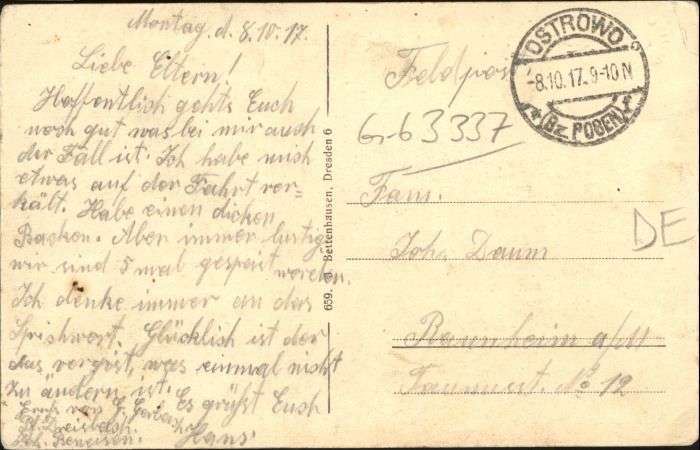 Montag, d. 8.10.17.
Liebe Eltern!
Hoffentlich gehts Euch
noch gut was bei mir auch
der Fall ist. Ich habe mich
etwas auf der Fahrt ver=
kält. Habe einen dicken
Backen. Aber immer lustig
wir sind 5 mal gespeist
worden.
Ich denke immer an das
Sprishwort. Glücklich ist der
das vergist, was einmal nicht
zu ändern ist. Es grüßt Euch
Hans
Gruß von G.
659. Bettenhausen, Dresden 6
Feldpost
OSTROWO
-8.10.17.9-10N
* (Bz. POSEN) f
G-63337
Fam.
Joh. Daum
DE
a/M
No 12